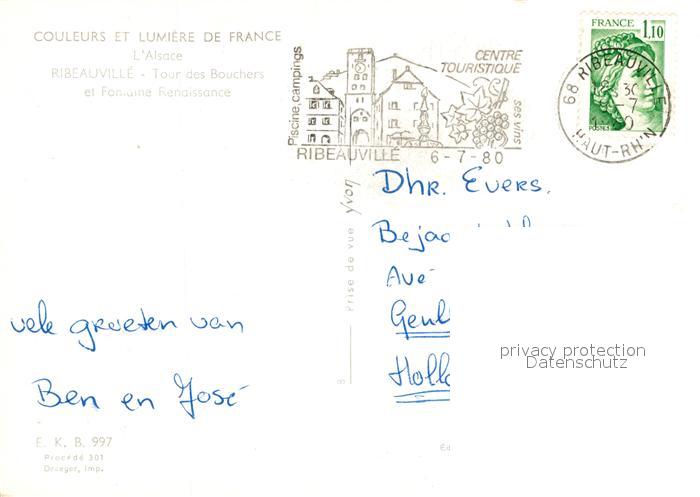 COULEURS ET LUMIÈRE DE FRANCE
L'Alsace
RIBEAUVILLÉ - Tour des Bouchers
et Fontaine Renaissance
Piscine, campings
CENTRE
TOURISTIQUE
ses vins
RIBEAUVILLÉ 6-7-80
FRANCE
1,10
POSTES
68 RIBEAUVILLE
HAUT-RHIN
Dhr. Evers.
Ave
Holl
privacy protection
Datenschutz
vele groeten van
Ben en José
Prise de vue Yvon
E. K. B. 997
Procédé 301
Draeger, Imp.